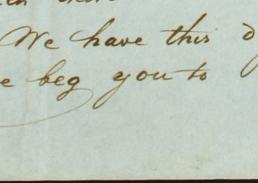 We have this d
e beg you to